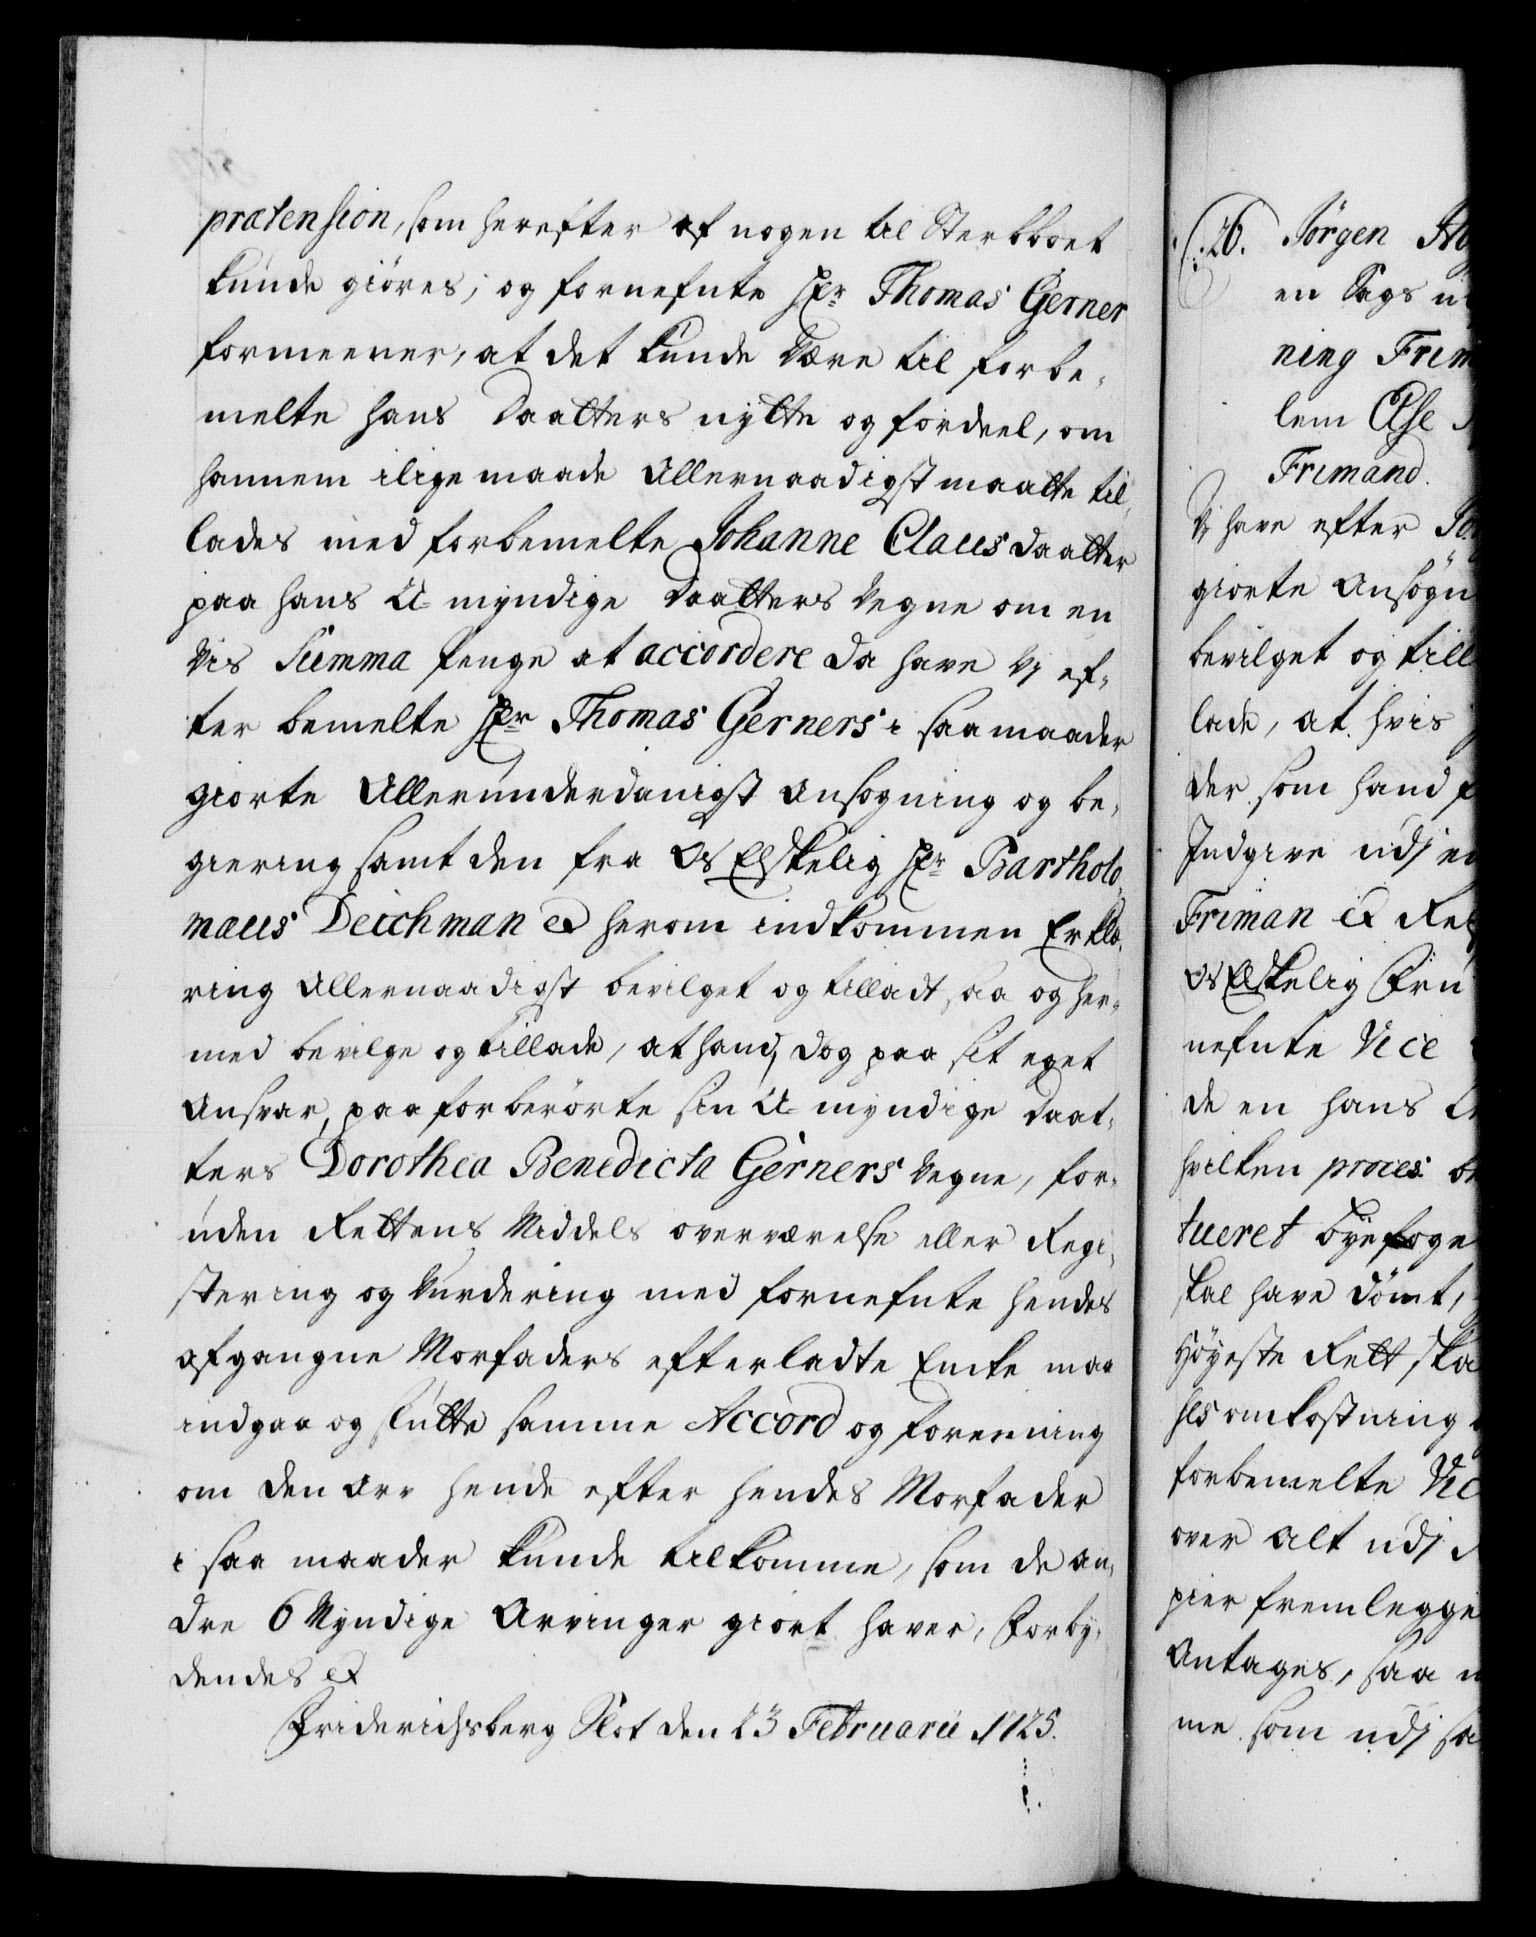 prætension, som herefter af nogen til Sterbboet
kunde giöres; og fornefnte Hr Thomas Gerner
formeener, at det kunde være til forbe-
melte hans Daatters nytte og fordeel, om
hannem ilige maade Allernaadigst maatte til-
lades med forbemelte Johanne Claus daatter
paa hans U-myndige Daatters Vegne om en
Vis Summa Penge at accordere da have Vj ef-
ter bemelte Hr Thomas Gerners i saa maader
giorte Allerunderdanigst Ansögning og be-
giering samt den fra Os Elskelig Hr Bartholo-
mæus Deichman &c herom indkommen Erklæ-
ring Allernaadigst bevilget og tilladt, saa og her-
med bevilge og tillade, at hand, dog paa sit eget
Ansvar, paa forberörte sin U-myndige Daat-
ters Dorothea Benedicta Gerners Vegne, for-
uden Rettens Middels overværelse eller Regi-
stering og Vurdering med fornefnte hendes
afgangne Morfaders efterladte Encke maa
indgaa og slutte samme Accord og forening
om den Arv hende efter hendes Morfader
i saa maader kunde tilkomme, som de an-
dre 6 Myndige Arvinger giort haver, Forby-
dendes &c
Friderichsberg Slot den 23 Februarii 1725.
26. Jörgen
en Sags
ning
lem Else
Frimand.
Vj have efter
giorte Ansögn
bevilget og till
lade, at hvis
der som hand
Indgive udj en
Friman &c
Os Elskelig
nefnte Vice
de en hans
hvilken proces
tueret byefoge
skal have dömt,
Höyeste Rett ska
sels omkostning
forbemelte Vic
over alt udj
pier fremlegge
Antages, saa
me som udj sa